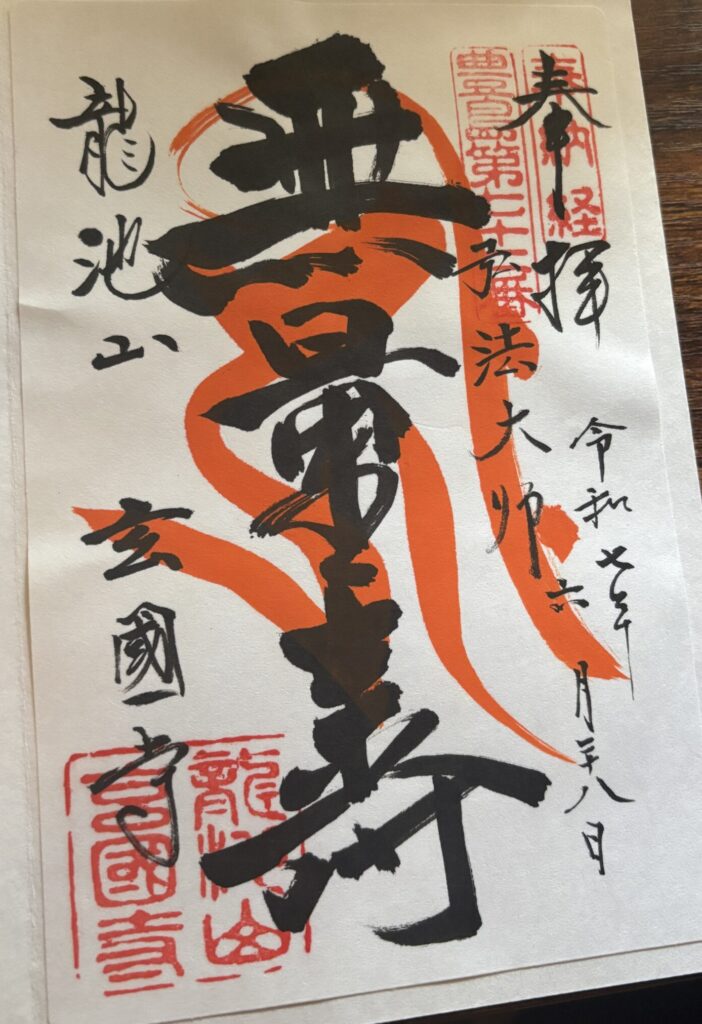 奉納経
奉拝
令和七年六月二十八日
豊島第
弘法大師
無量寿
龍池山 玄國寺
龍池山
玄國寺